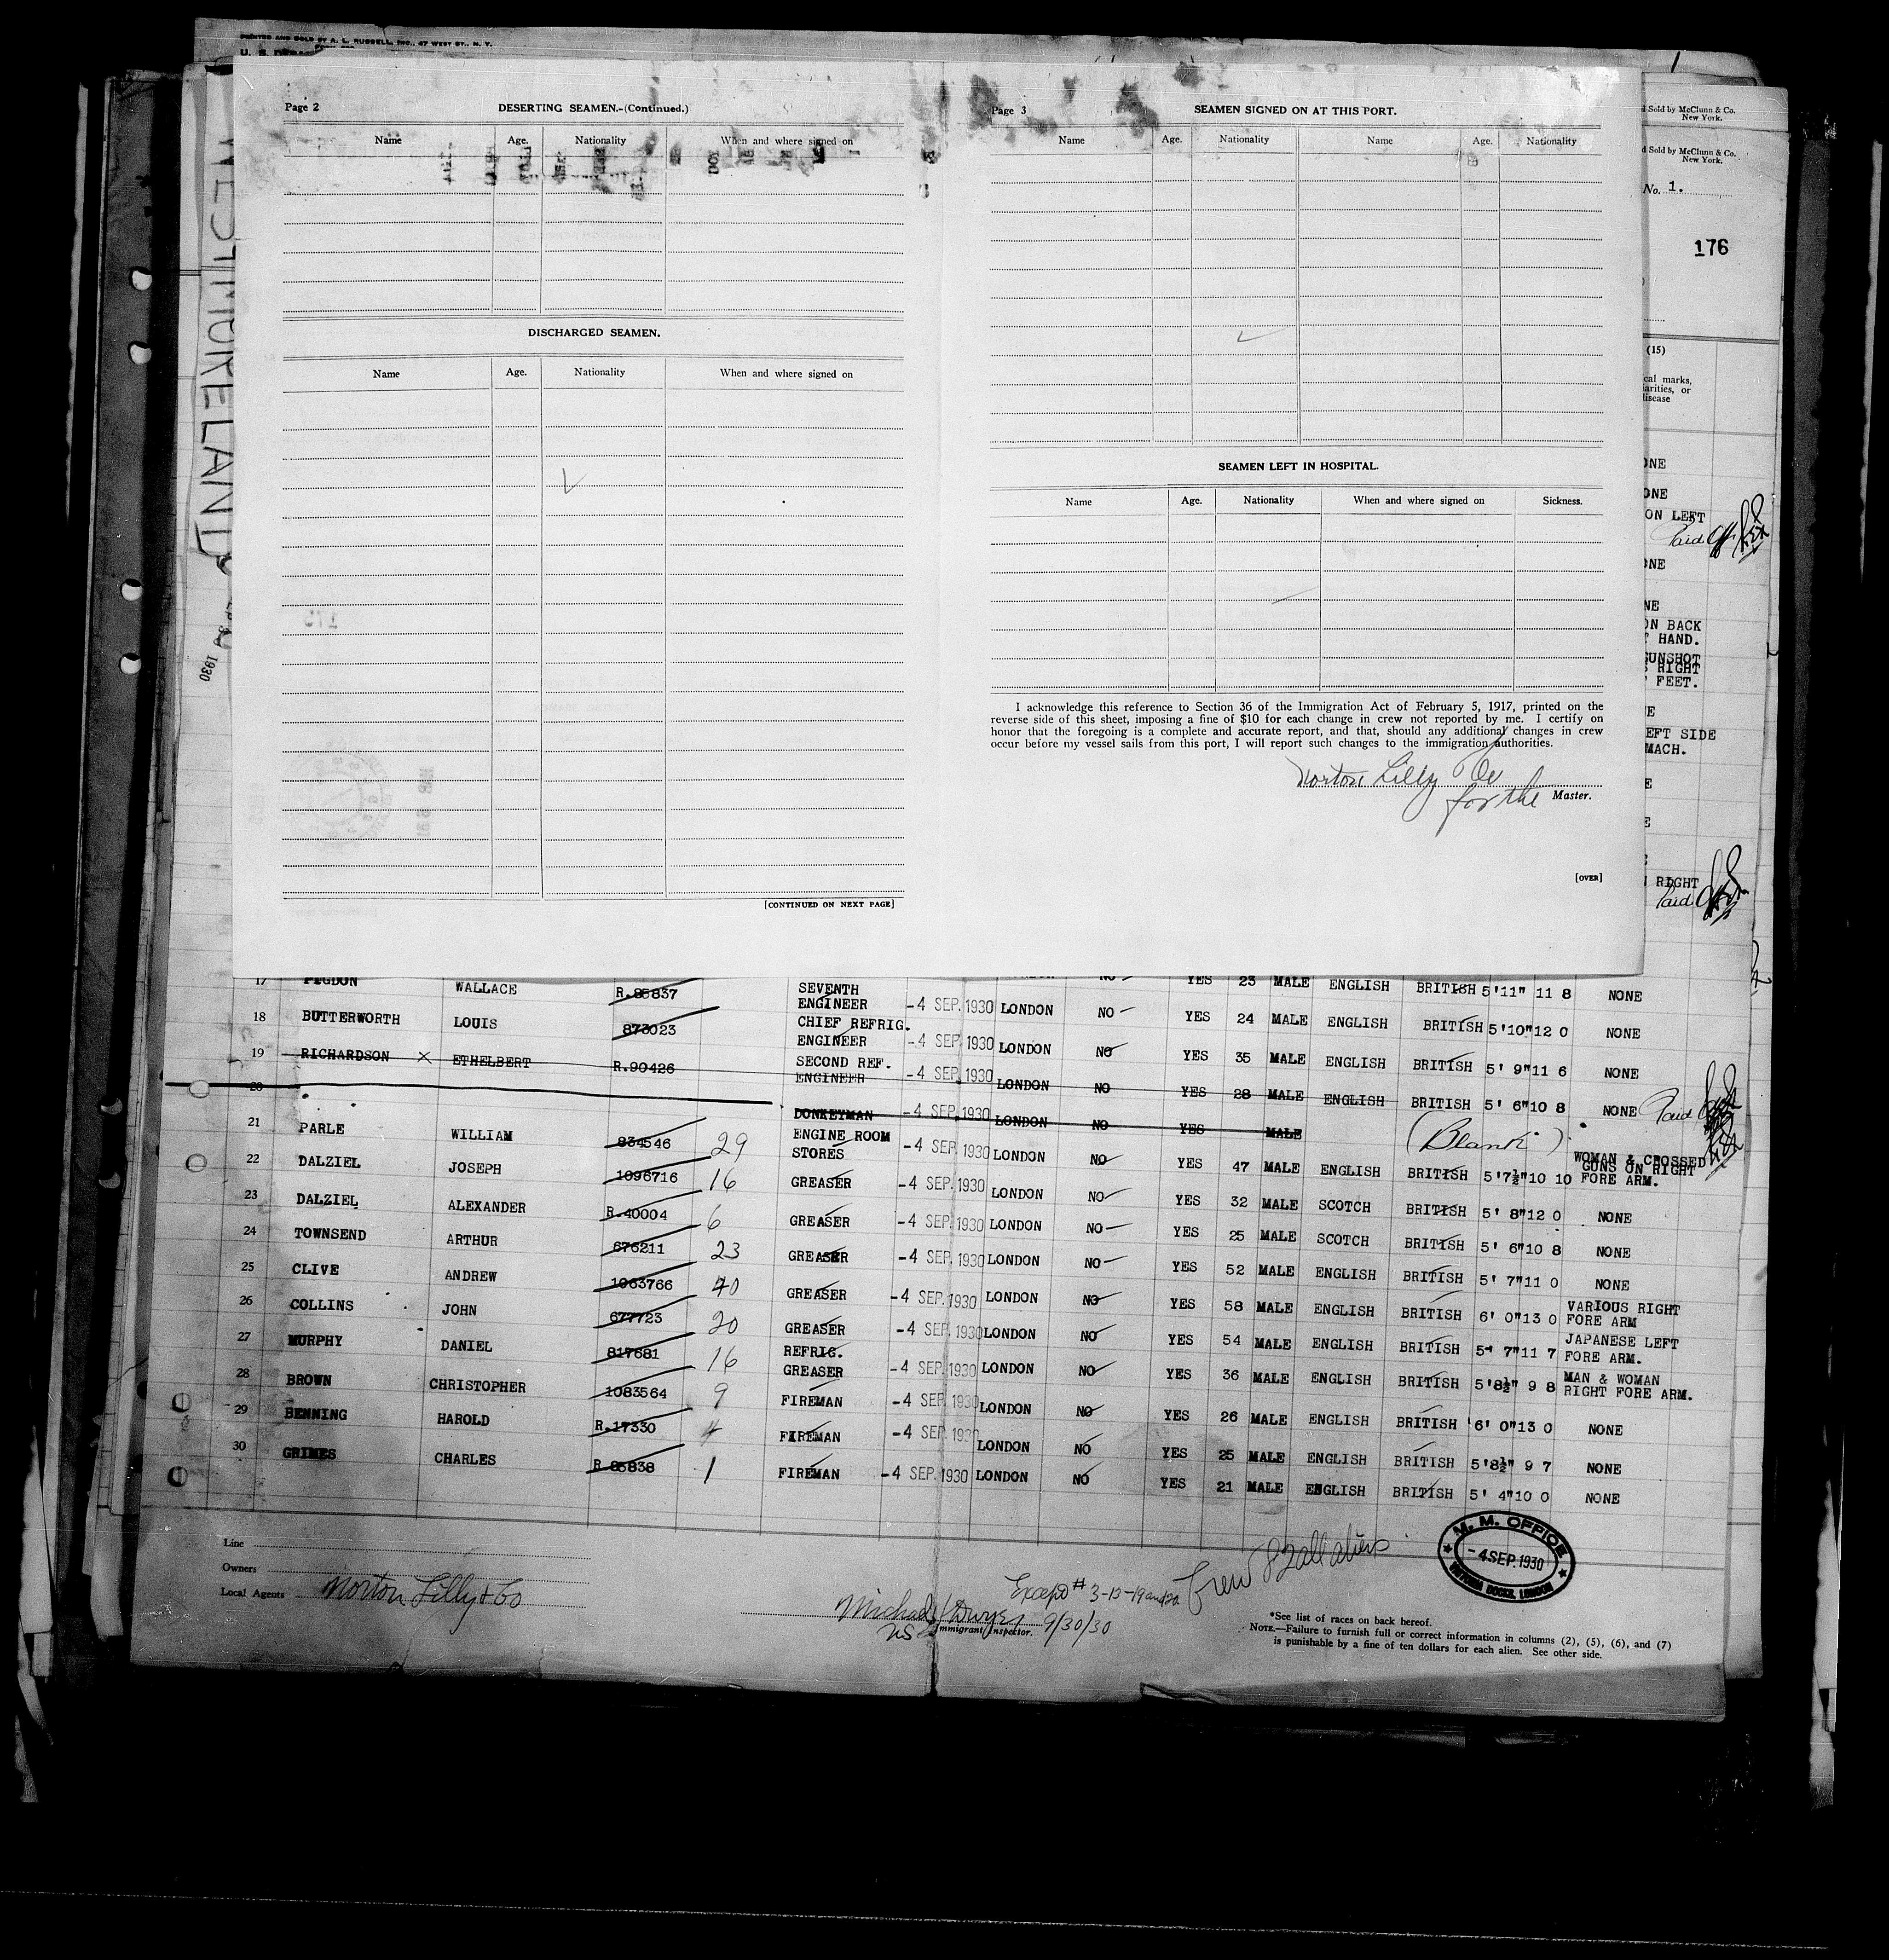 PRINTED AND SOLD BY A. L. RUSSELL, INC., 47 WEST ST., N. Y.
Page 2
DESERTING SEAMEN.-(Continued.)
Name Age. Nationality When and where signed on
DISCHARGED SEAMEN.
Name Age. Nationality When and where signed on
[CONTINUED ON NEXT PAGE]
Page 3
SEAMEN SIGNED ON AT THIS PORT.
Name Age. Nationality Name Age. Nationality
SEAMEN LEFT IN HOSPITAL.
Name Age. Nationality When and where signed on Sickness.
I acknowledge this reference to Section 36 of the Immigration Act of February 5, 1917, printed on the
reverse side of this sheet, imposing a fine of $10 for each change in crew not reported by me. I certify on
honor that the foregoing is a complete and accurate report, and that, should any additional changes in crew
occur before my vessel sails from this port, I will report such changes to the immigration authorities.
Norton Lilly Co
for the Master.
[OVER]
WESTMORELAND
1930
Sold by McClunn & Co.
New York.
Sold by McClunn & Co.
New York.
No. 1.
176
(15)
marks,
or
disease
ONE
ONE
ON LEFT
Paid Off
ONE
NE
ON BACK
HAND.
GUNSHOT
RIGHT
FEET.
E
LEFT SIDE
MACH.
E
E
RIGHT
Paid Off
17 PIGDON WALLACE R.85837 SEVENTH ENGINEER -4 SEP. 1930 LONDON NO YES 23 MALE ENGLISH BRITISH 5'11" 11 8 NONE
18 BUTTERWORTH LOUIS 873023 CHIEF REFRIG. ENGINEER -4 SEP. 1930 LONDON NO YES 24 MALE ENGLISH BRITISH 5'10" 12 0 NONE
19 RICHARDSON X ETHELBERT R.90426 SECOND REF. ENGINEER -4 SEP. 1930 LONDON NO YES 35 MALE ENGLISH BRITISH 5' 9" 11 6 NONE
20 DONKEYMAN -4 SEP. 1930 LONDON NO YES 28 MALE ENGLISH BRITISH 5' 6" 10 8 NONE Paid Off
LONDON NO YES MALE (Blank)
21 PARLE WILLIAM 834546 29 ENGINE ROOM STORES -4 SEP. 1930 LONDON NO YES 47 MALE ENGLISH BRITISH 5'7½" 10 10 WOMAN & CROSSED GUNS ON RIGHT FORE ARM.
22 DALZIEL JOSEPH 1096716 16 GREASER -4 SEP. 1930 LONDON NO YES 32 MALE SCOTCH BRITISH 5' 8" 12 0 NONE
23 DALZIEL ALEXANDER R.40004 6 GREASER -4 SEP. 1930 LONDON NO YES 25 MALE SCOTCH BRITISH 5' 6" 10 8 NONE
24 TOWNSEND ARTHUR 676211 23 GREASER -4 SEP. 1930 LONDON NO YES 52 MALE ENGLISH BRITISH 5' 7" 11 0 NONE
25 CLIVE ANDREW 1063766 40 GREASER -4 SEP. 1930 LONDON NO YES 58 MALE ENGLISH BRITISH 6' 0" 13 0 VARIOUS RIGHT FORE ARM
26 COLLINS JOHN 677723 20 GREASER -4 SEP. 1930 LONDON NO YES 54 MALE ENGLISH BRITISH 5' 7" 11 7 JAPANESE LEFT FORE ARM.
27 MURPHY DANIEL 817681 16 REFRIG. GREASER -4 SEP. 1930 LONDON NO YES 36 MALE ENGLISH BRITISH 5'8½" 9 8 MAN & WOMAN RIGHT FORE ARM.
28 BROWN CHRISTOPHER 1083564 9 FIREMAN -4 SEP. 1930 LONDON NO YES 26 MALE ENGLISH BRITISH 6' 0" 13 0 NONE
29 BENNING HAROLD R.17330 4 FIREMAN -4 SEP. 1930 LONDON NO YES 25 MALE ENGLISH BRITISH 5'8½" 9 7 NONE
30 GRIMES CHARLES R.85838 1 FIREMAN -4 SEP. 1930 LONDON NO YES 21 MALE ENGLISH BRITISH 5' 4" 10 0 NONE
Line
Owners
Local Agents Norton Lilly & Co
Michael J Dwyer 9/30/30
US Immigrant Inspector.
Except # 3-13-19 and 20
Crew 82 all aliens
M. M. OFFICE
-4 SEP. 1930
VICTORIA DOCKS, LONDON
*See list of races on back hereof.
NOTE.—Failure to furnish full or correct information in columns (2), (5), (6), and (7)
is punishable by a fine of ten dollars for each alien. See other side.